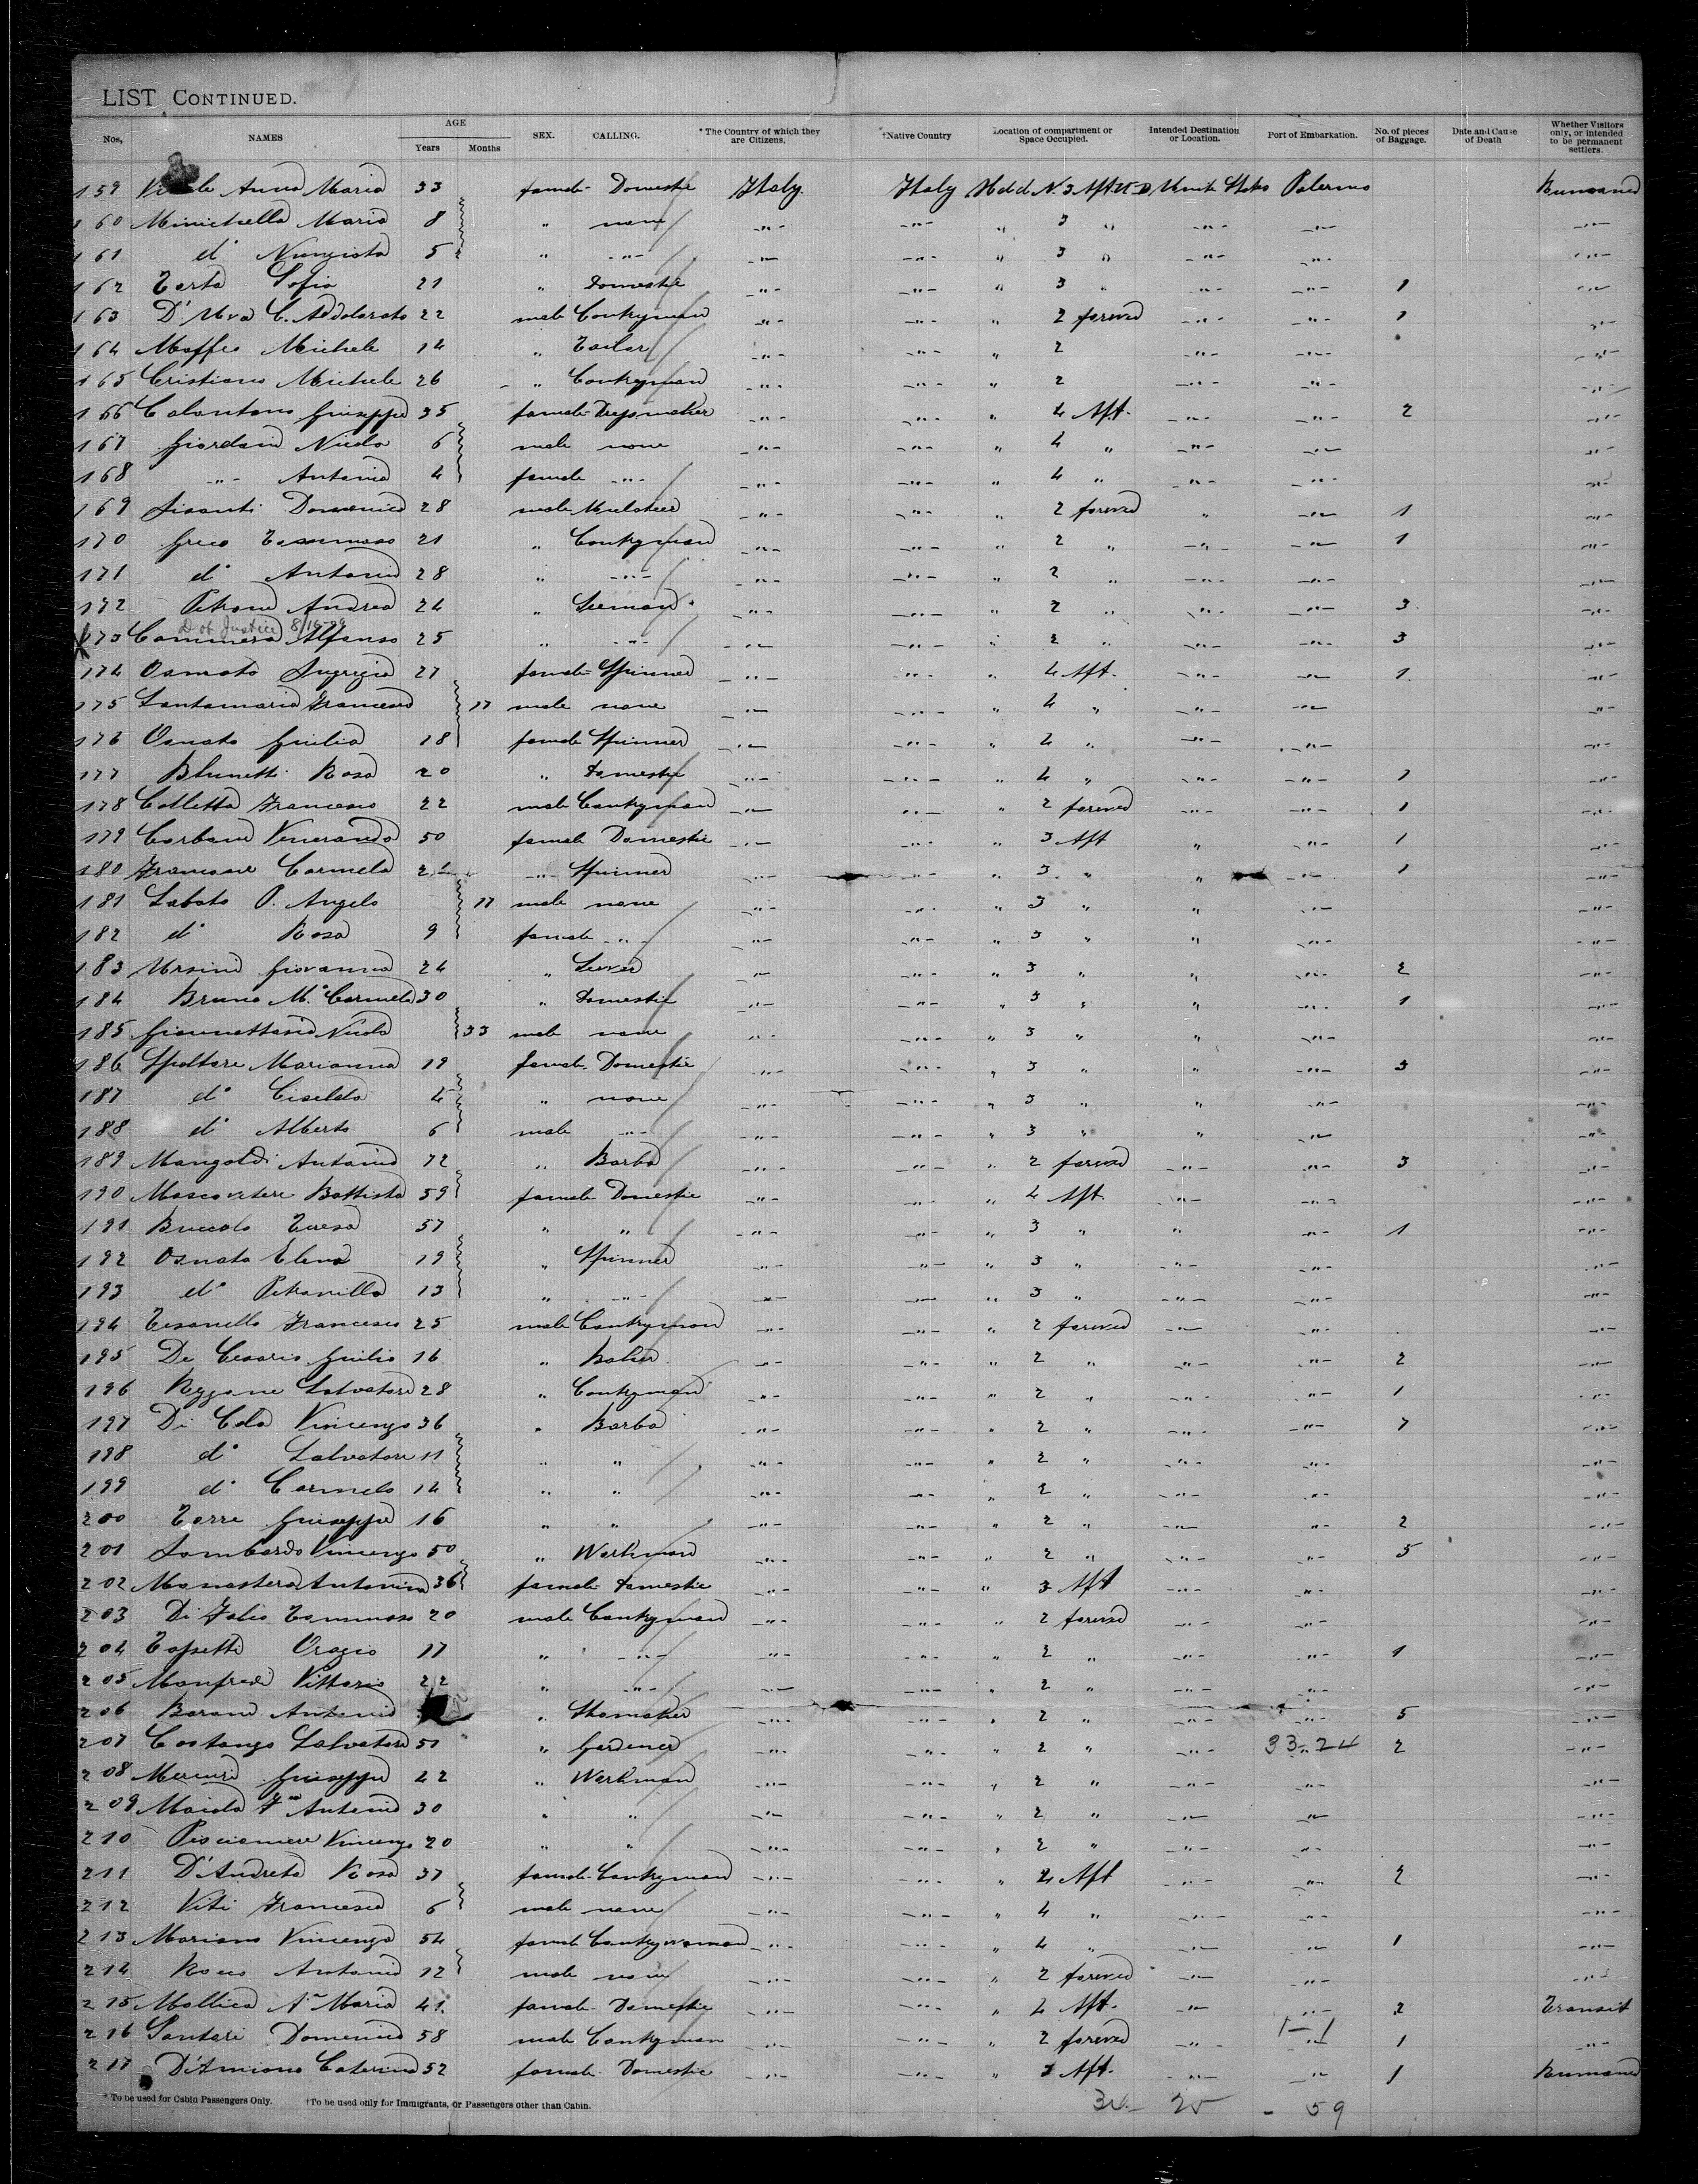 LIST CONTINUED.
Nos, NAMES AGE Years Months SEX. CALLING. *The Country of which they are Citizens. †Native Country Location of compartment or Space Occupied. Intended Destination or Location. Port of Embarkation. No. of pieces of Baggage. Date and Cause of Death Whether Visitors only, or intended to be permanent settlers.
159 Anna Maria 33 female Domestic Italy. Italy N. 3 Aft Palermo
160 Minichella Maria 8 " none -"- -"- " 3 " -"- -"- -"-
161 d° Nunziata 5 " -"- -"- -"- " 3 " -"- -"- -"-
162 Testa Sofia 21 " Domestic -"- -"- " 3 " -"- -"- 1 -"-
163 D' Uva C. Addolorato 22 male Contryman -"- -"- " 2 forewd -"- -"- 1 -"-
164 Maffeo Michele 14 " Tailor -"- -"- " 2 -"- -"- -"-
165 Cristiano Michele 26 " Contryman -"- -"- " 2 -"- -"- -"-
166 Colantono Giuseppa 35 female Dressmaker -"- -"- " 4 Aft. -"- -"- 2 -"-
167 Giordano Nicola 6 male none -"- -"- " 4 " -"- -"- -"-
168 -"- Antonia 4 female -"- -"- -"- " 4 " -"- -"- -"-
169 Lisanti Domenico 28 male -"- -"- " 2 forewd " -"- 1 -"-
170 Greco Tommaso 21 " Contryman -"- -"- " 2 " -"- -"- 1 -"-
171 d° Antonio 28 " -"- -"- -"- " 2 " -"- -"- -"-
172 Petrone Andrea 24 " Seeman -"- -"- " 2 " -"- -"- 3 -"-
D of Justice 8/16-
173 Alfonso 25 " -"- -"- -"- " 2 " -"- -"- 3 -"-
174 Osnato 27 female Spinner -"- -"- " 4 Aft. -"- -"- 1 -"-
175 Santamaria Francesco 17 male none -"- -"- " 4 " -"- -"- -"-
176 Osnato Giulia 18 female Spinner -"- -"- " 4 " -"- -"- -"-
177 Blunetti Rosa 20 " Domestic -"- -"- " 4 " -"- -"- 1 -"-
178 Colletta Francesco 22 male Contryman -"- -"- " 2 forewd -"- -"- 1 -"-
179 Carbone Veneranda 50 female Domestic -"- -"- " 3 Aft " -"- 1 -"-
180 Carmela -"- Spinner -"- -"- " 3 " " -"- 1 -"-
181 Sabato P. Angelo 17 male none -"- -"- " 3 " " -"- -"-
182 d° Rosa 9 female -"- -"- -"- " 3 " " -"- -"-
183 Ursini Giovanna 24 " -"- -"- " 3 " " -"- 2 -"-
184 Bruno M.ª Carmela 30 " Domestic -"- -"- " 3 " " -"- 1 -"-
185 Giannattasio Nicola 33 male none -"- -"- " 3 " " -"- -"-
186 Spoltore Marianna 19 female Domestic -"- -"- " 3 " " -"- 3 -"-
187 d° Ciselda 4 " none -"- -"- " 3 " " -"- -"-
188 d° Alberto 6 male -"- -"- -"- " 3 " " -"- -"-
189 Mangoldi Antonio 72 " Barba -"- -"- " 2 forewd -"- -"- 3 -"-
190 Battista 59 female Domestic -"- -"- " 4 Aft -"- -"- -"-
191 Buccolo Teresa 57 " " -"- -"- " 3 " " -"- 1 -"-
192 Osnato Elena 19 " Spinner -"- -"- " 3 " -"- -"- -"-
193 d° Petronilla 13 " -"- -"- -"- " 3 " -"- -"- -"-
194 Tesanello Francesco 25 male Contryman -"- -"- " 2 forewd -"- -"- -"-
195 De Cesaris Giulio 16 " -"- -"- " 2 " -"- -"- 2 -"-
196 Salvatore 28 " Contryman -"- -"- " 2 " -"- -"- 1 -"-
197 Di Cola Vincenzo 36 " Barba -"- -"- " 2 " -"- -"- 7 -"-
198 d° Salvatore 11 " " -"- -"- " 2 " -"- -"- -"-
199 d° Carmelo 14 " " -"- -"- " 2 " -"- -"- -"-
200 Torre Giuseppe 16 " " -"- -"- " 2 " -"- -"- 2 -"-
201 Lombardo Vincenzo 50 " Workman -"- -"- " 2 " -"- -"- 5 -"-
202 Monastera Antonina 36 female Domestic -"- -"- " 3 Aft -"- -"- -"-
203 Di Tommaso 20 male Contryman -"- -"- " 2 forewd -"- -"- -"-
204 Tossetti Orazio 17 " -"- -"- -"- " 2 " -"- -"- 1 -"-
205 Manfredi Vittorio 22 " -"- -"- -"- " 2 " -"- -"- -"-
206 Barone Antonio " Shomaker -"- -"- " 2 " -"- -"- 5 -"-
207 Costanzo Salvatore 51 " Gardener -"- -"- " 2 " -"- 33-24 2 -"-
208 Mercurio Giuseppe 42 " Workman -"- -"- " 2 " -"- -"- -"-
209 Maida Antonio 30 " " -"- -"- " 2 " -"- -"- -"-
210 Vincenzo 20 " " -"- -"- " 2 " -"- -"- -"-
211 D'Andreta Rosa 37 female Contryman -"- -"- " 4 Aft -"- -"- 2 -"-
212 Viti Francesco 6 male none -"- -"- " 4 " -"- -"- -"-
213 Mariano Vincenza 54 female Contrywoman -"- -"- " 4 " -"- -"- 1 -"-
214 Rocco Antonio 12 male none -"- -"- " 2 forewd -"- -"- -"-
215 Mollica Aª Maria 41 female Domestic -"- -"- " 4 Aft. -"- -"- 2 Transit
216 Santari Domenico 58 male Contryman -"- -"- " 2 forewd " 1-1 1 -"-
217 D'Amiano Caterina 52 female Domestic -"- -"- " 3 Aft. -"- -"- 1
*To be used for Cabin Passengers Only. †To be used only for Immigrants, or Passengers other than Cabin.
34 - 25 - 59